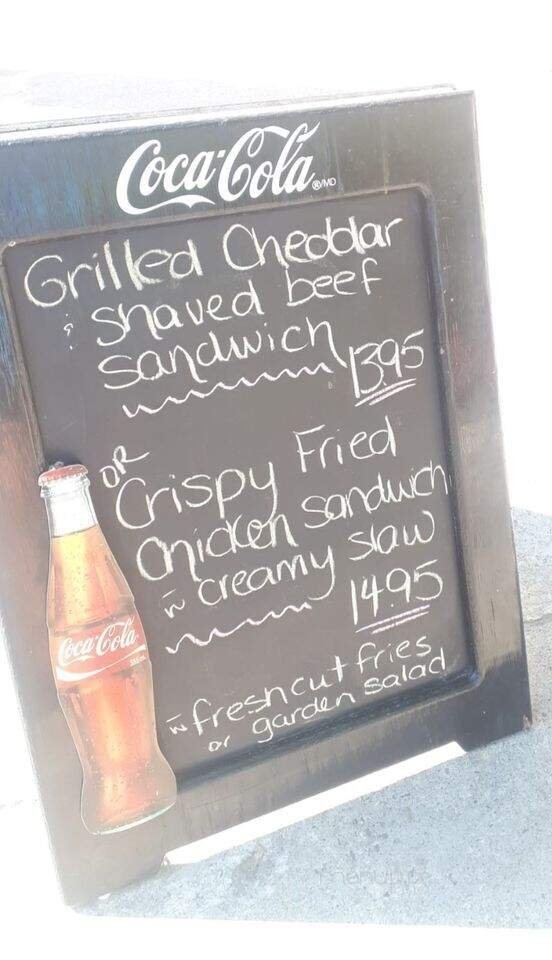 Coca-Cola ®/MD
Grilled Cheddar
& shaved beef
sandwich
1395
OR
Crispy Fried
Chicken sandwich
w creamy slaw
1495
Coca-Cola
w fresh cut fries
or garden salad